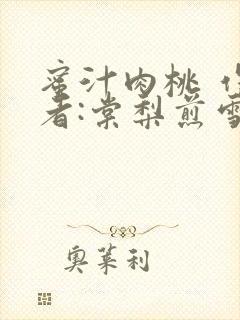 蜜汁肉桃 作
者:棠梨煎雪
奥莱利